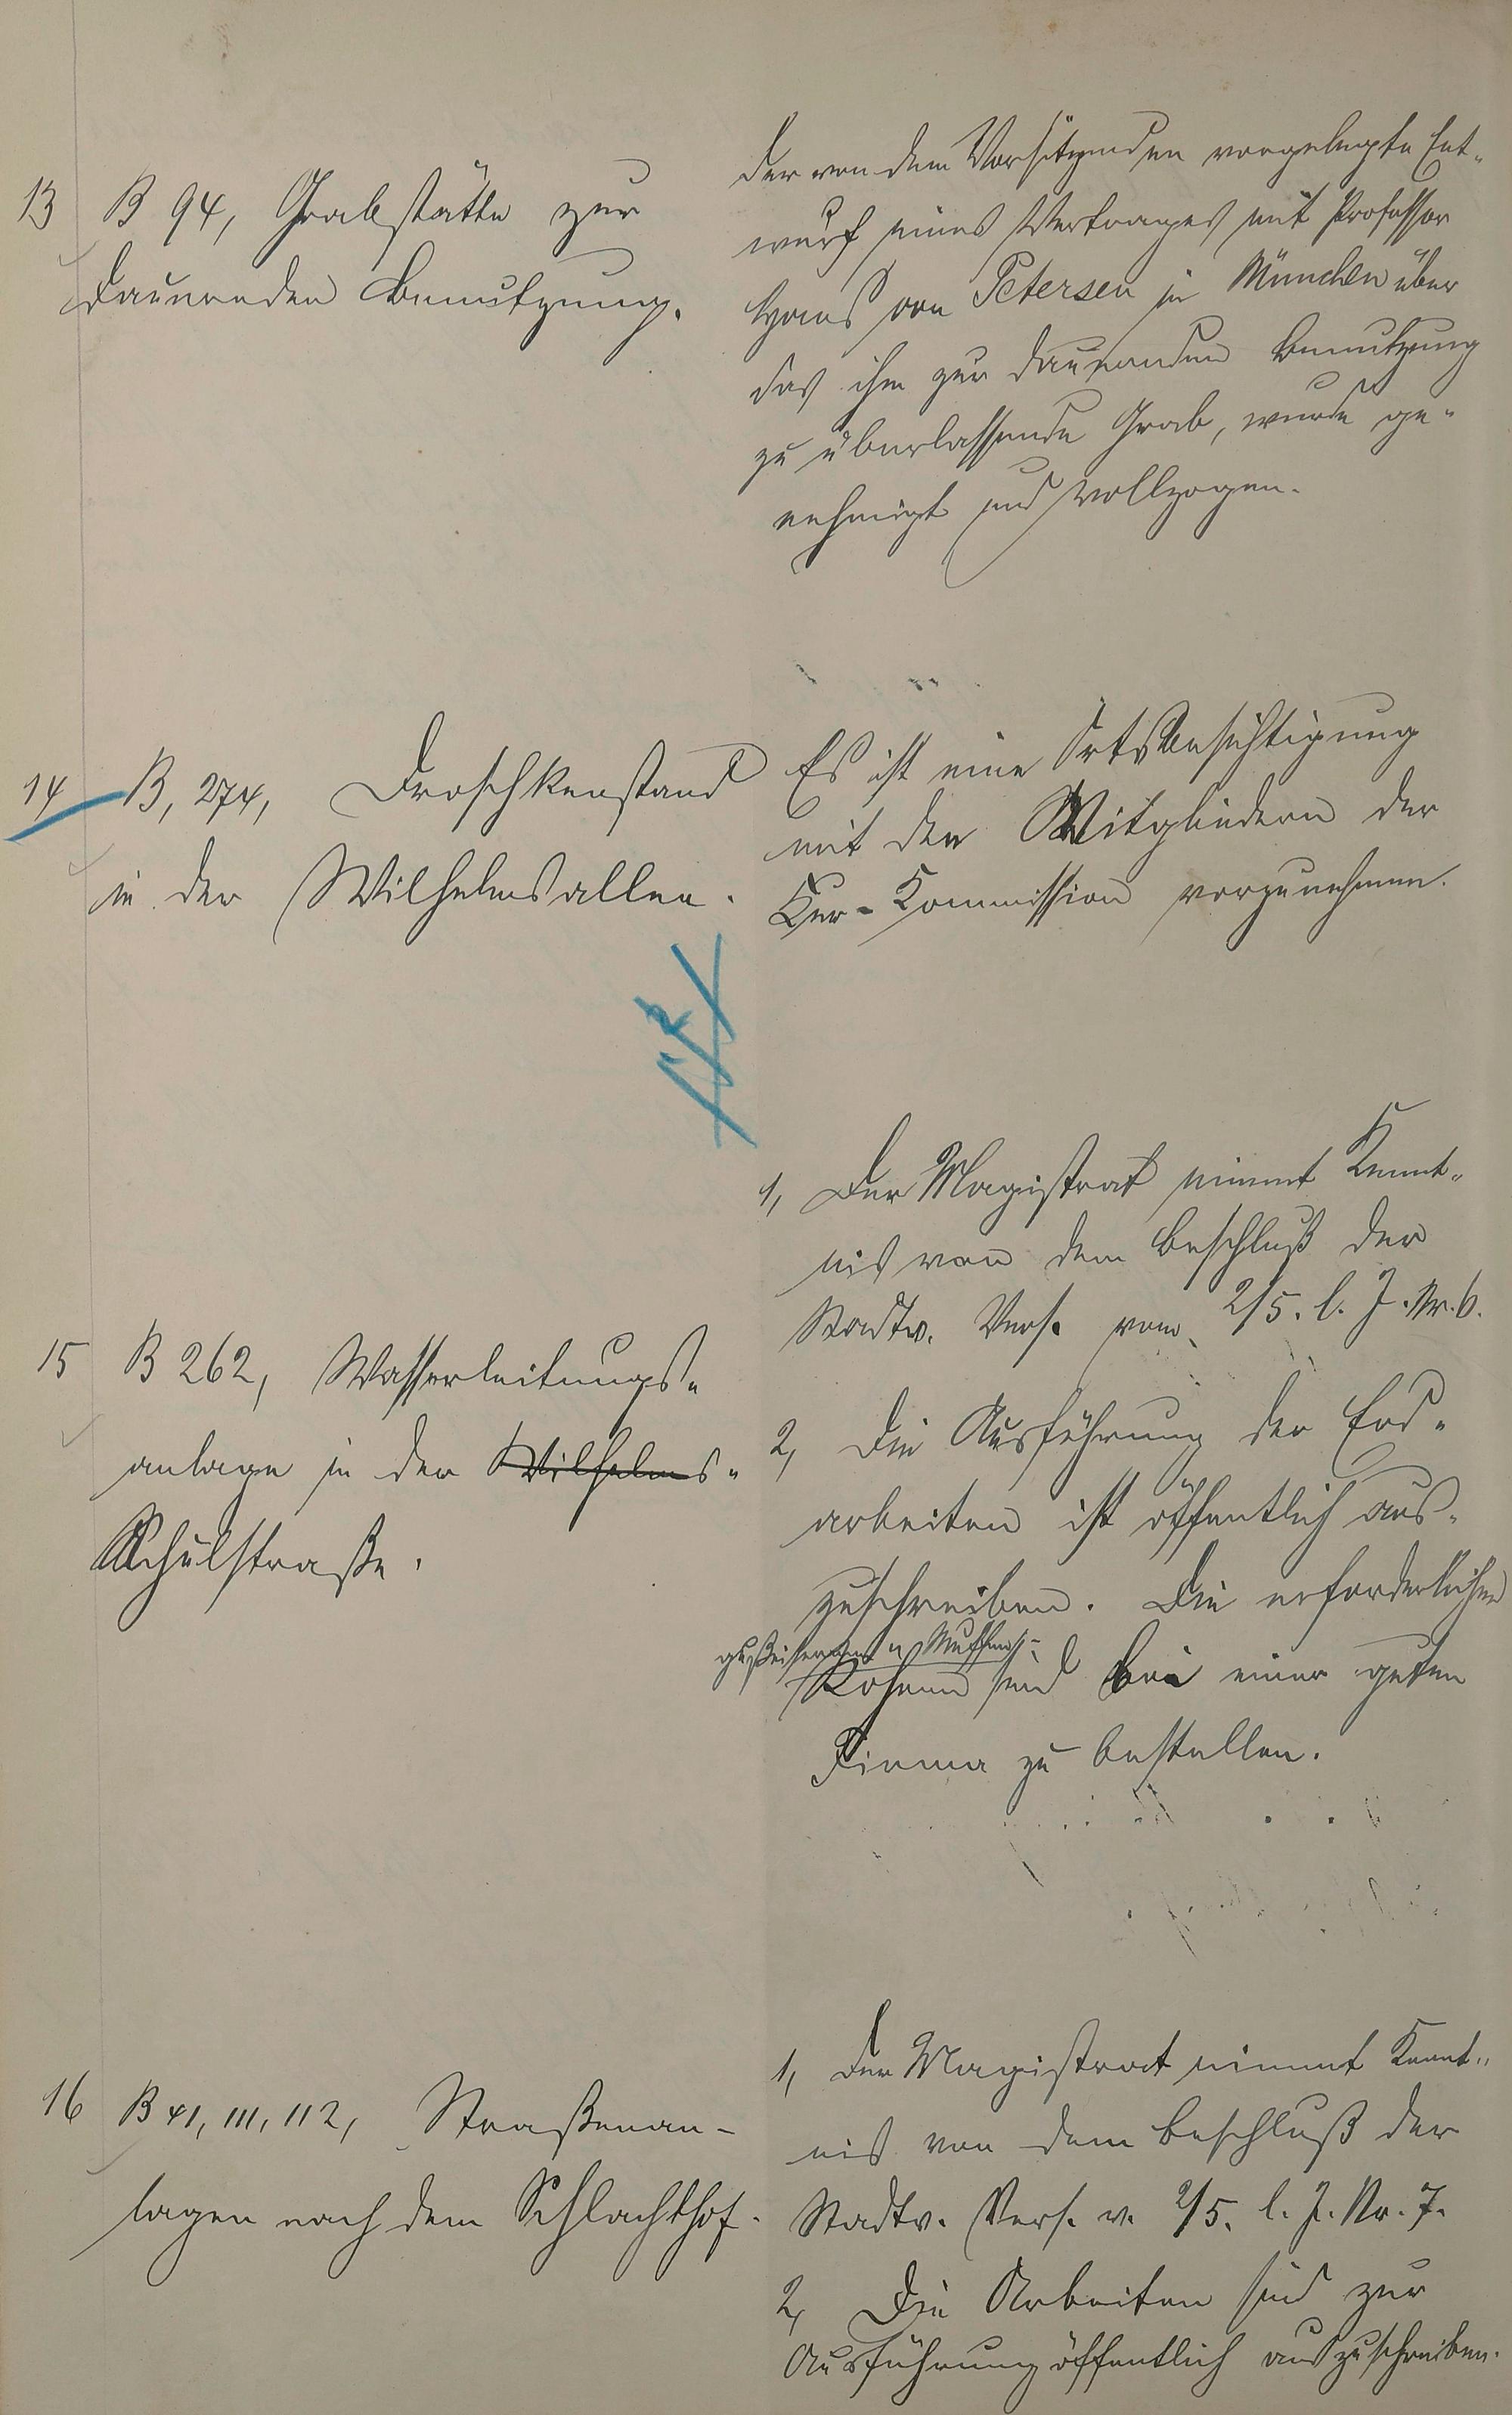 13 B 94, Grabstätte zur
dauernden Benutzung.
Der von dem Vorsitzenden vorgelegte Ent-
wurf eines Vertrages mit Professor
Hans von Petersen in München über
das ihm zur dauernden Benutzung
zu überlassende Grab, wurde ge-
nehmigt und vollzogen.
14 B, 274, Droschkenstand
in der Wilhelmsallee.
Es ist eine Ortsbesichtigung
mit den Mitgliedern der
Kur-Kommission vorzunehmen.
15 B 262, Wasserleitungs-
anlage in der Wilhelms-
Schulstraße.
1, Der Magistrat nimmt Kennt-
nis von dem Beschluß der
Stadtv. Vers. vom 2/5. l. J. Nr. 6.
2, Die Ausführung der Erd-
arbeiten ist öffentlich aus-
zuschreiben. Die erforderlichen
gußeisernen Muffen-
Rohren sind bei einer guten
Firma zu bestellen.
16 B 41, 111, 112, Straßenan-
lagen nach dem Schlachthof.
1, Der Magistrat nimmt Kennt-
nis von dem Beschluß der
Stadtv. Vers. v. 2/5. l. J. Nr. 7.
2, Die Arbeiten sind zur
Ausführung öffentlich auszuschreiben.